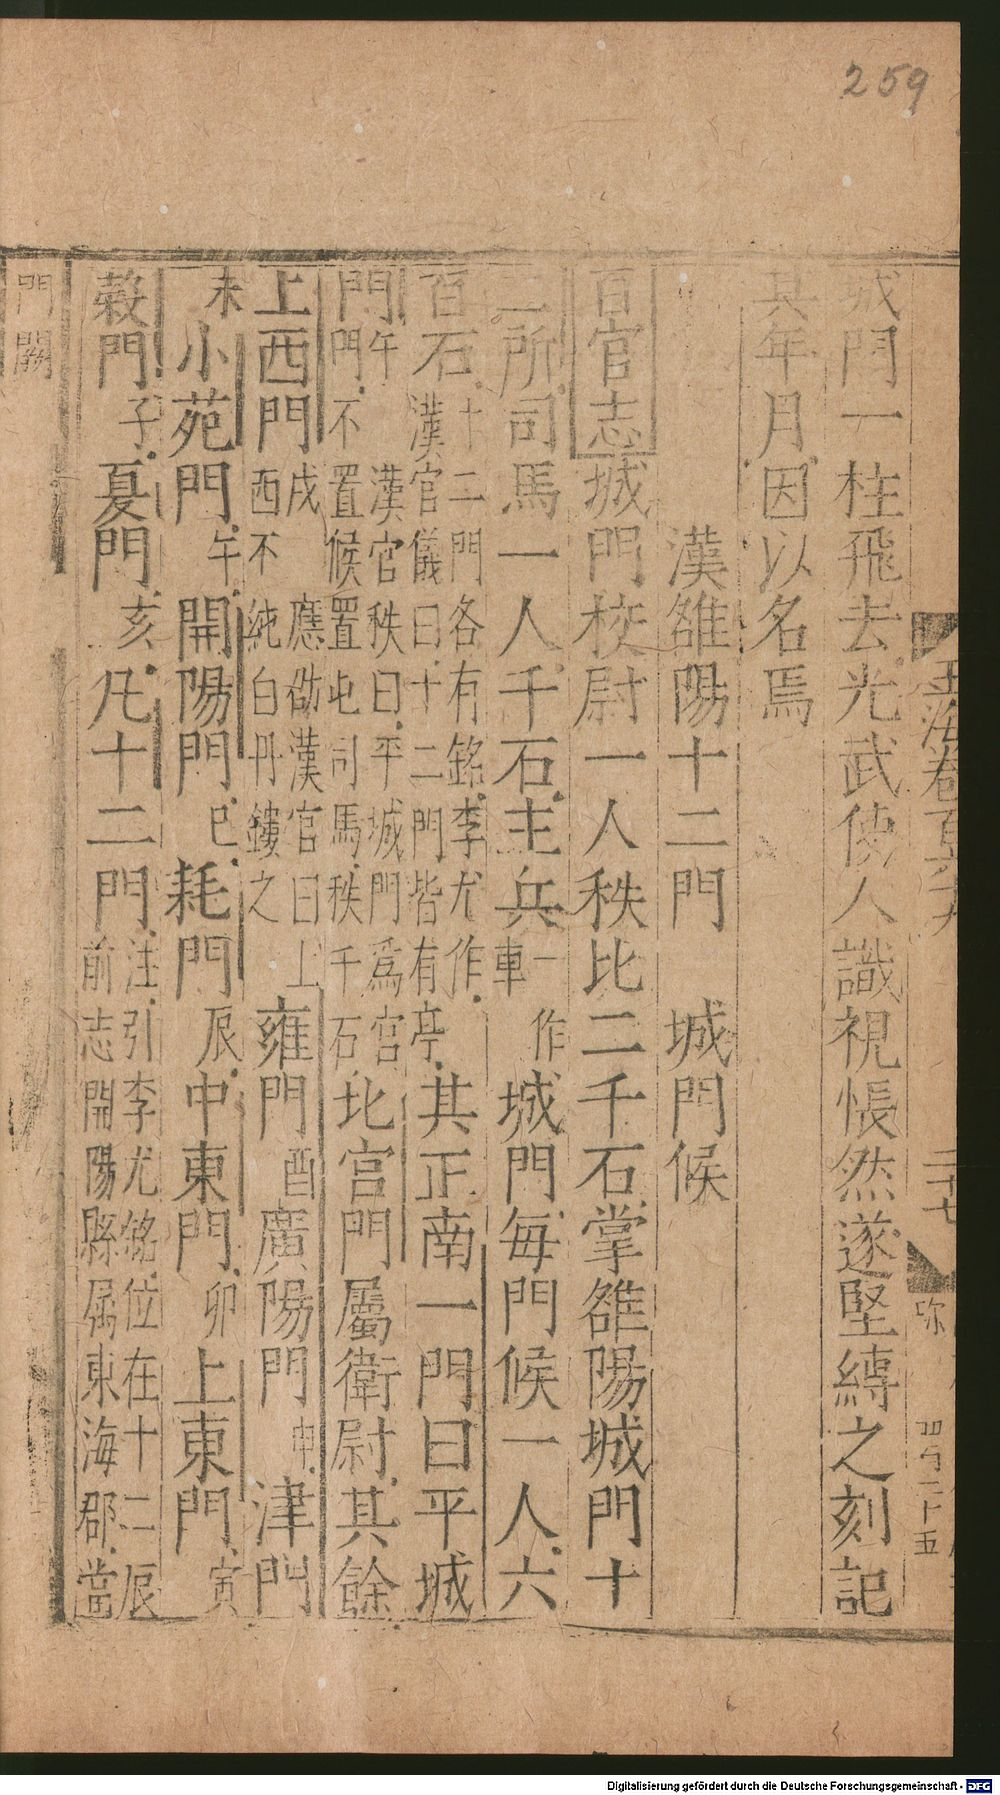 259
玉海卷百六十九
二十七
城門一柱飛去光武使人識視悵然遂堅縛之刻記
其年月因以名焉
漢雒陽十二門　城門候
百官志城門校尉一人秩比二千石掌雒陽城門十
二所司馬一人千石主兵一作車城門每門候一人六
百石十二門各有銘李尤作漢官儀曰十二門皆有亭其正南一門曰平城
門午漢官秩曰平城門爲宮門不置候置屯司馬秩千石北宮門屬衛尉其餘
上西門戌應劭漢官曰上西不純白丹鏤之雍門酉廣陽門申津門
未小苑門午開陽門巳耗門辰中東門卯上東門寅
榖門子夏門亥凡十二門注引李尤銘位在十二辰前志開陽縣属東海郡當
門闕
Digitalisierung gefördert durch die Deutsche Forschungsgemeinschaft - DFG